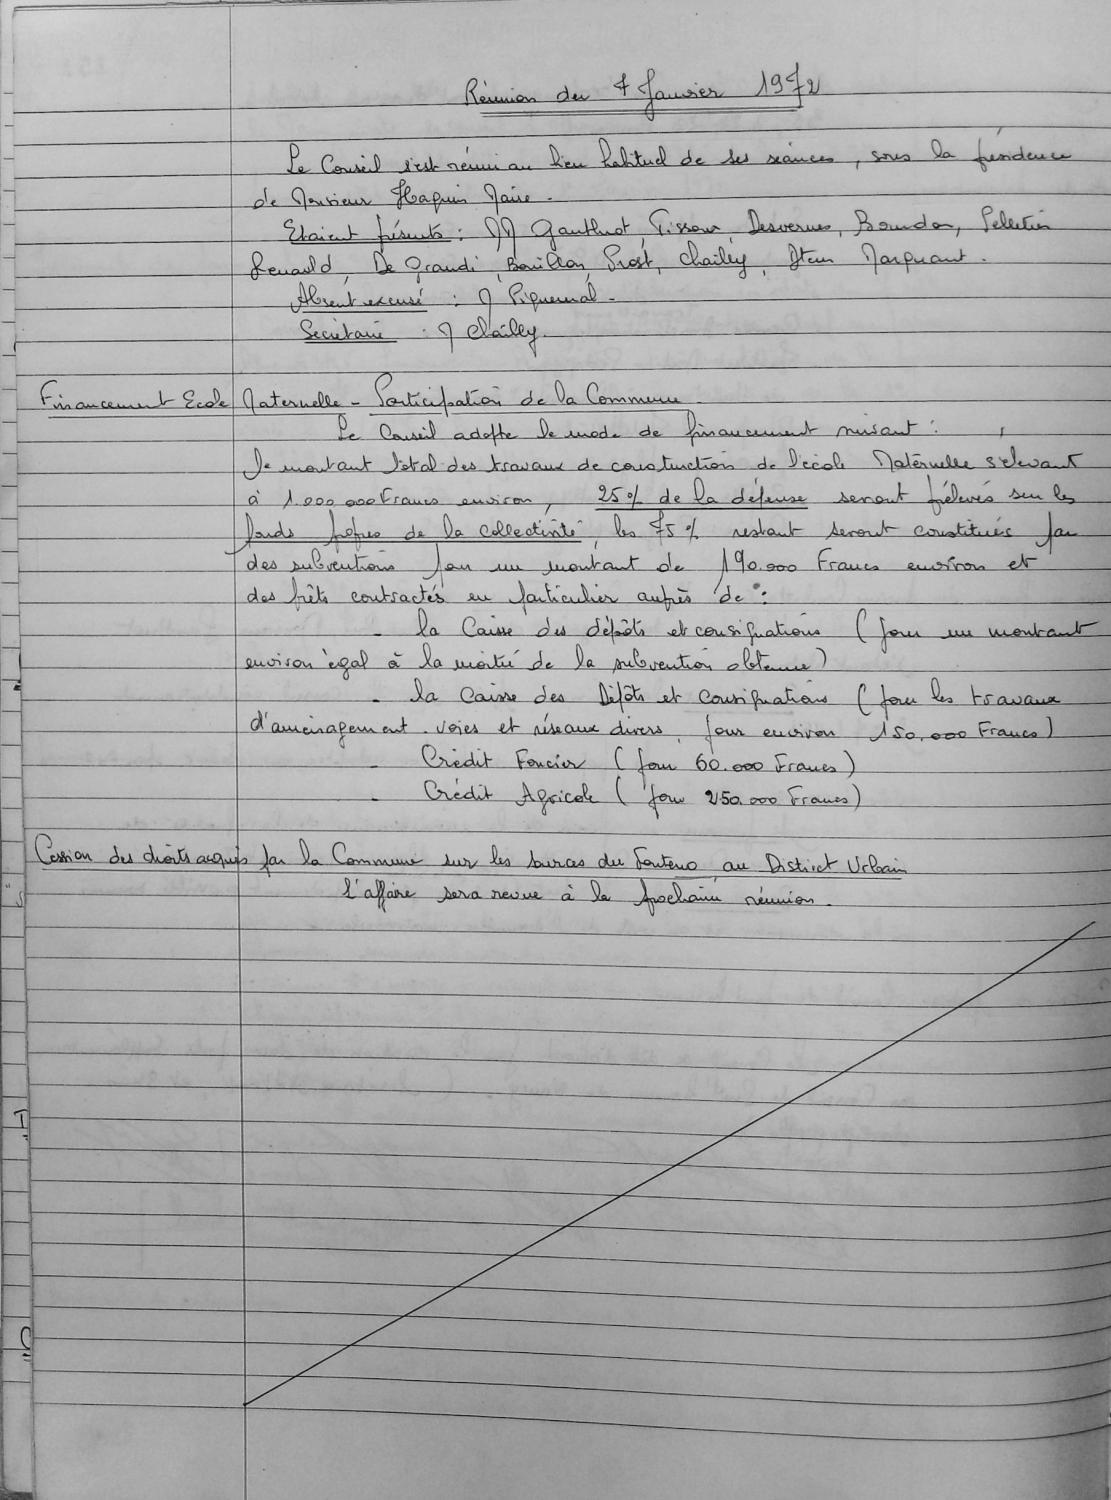 Réunion du 7 Janvier 1972
Le Conseil s'est réuni au lieu habituel de ses séances, sous la présidence
de Monsieur Haquin Maire.
Etaient présents : MM Gauthiot, Tissour, Desvernes, Bourdon, Pelletier
Renauld, De Grandi, Bouillon, Prost, Chailley, Stein Marquant.
Absent excusé : M Piquemal.
Secrétaire : M Chailley.
Financement Ecole Maternelle - Participation de la Commune.
Le Conseil adopte le mode de financement suivant :
Le montant total des travaux de construction de l'école Maternelle s'élevant
à 1.000.000 Francs environ, 25% de la dépense seront prélevés sur les
fonds propres de la collectivité, les 75% restant seront constitués par
des subventions pour un montant de 190.000 Francs environ et
des prêts contractés en particulier auprès de :
- la Caisse des dépôts et consignations (pour un montant
environ égal à la moitié de la subvention obtenue)
- la Caisse des Dépôts et Consignations (pour les travaux
d'aménagement. voies et réseaux divers, pour environ 150.000 Francs)
- Crédit Foncier (pour 60.000 Francs)
- Crédit Agricole (pour 250.000 Francs)
Cession des droits acquis par la Commune sur les sources du au District Urbain
L'affaire sera revue à la prochaine réunion.